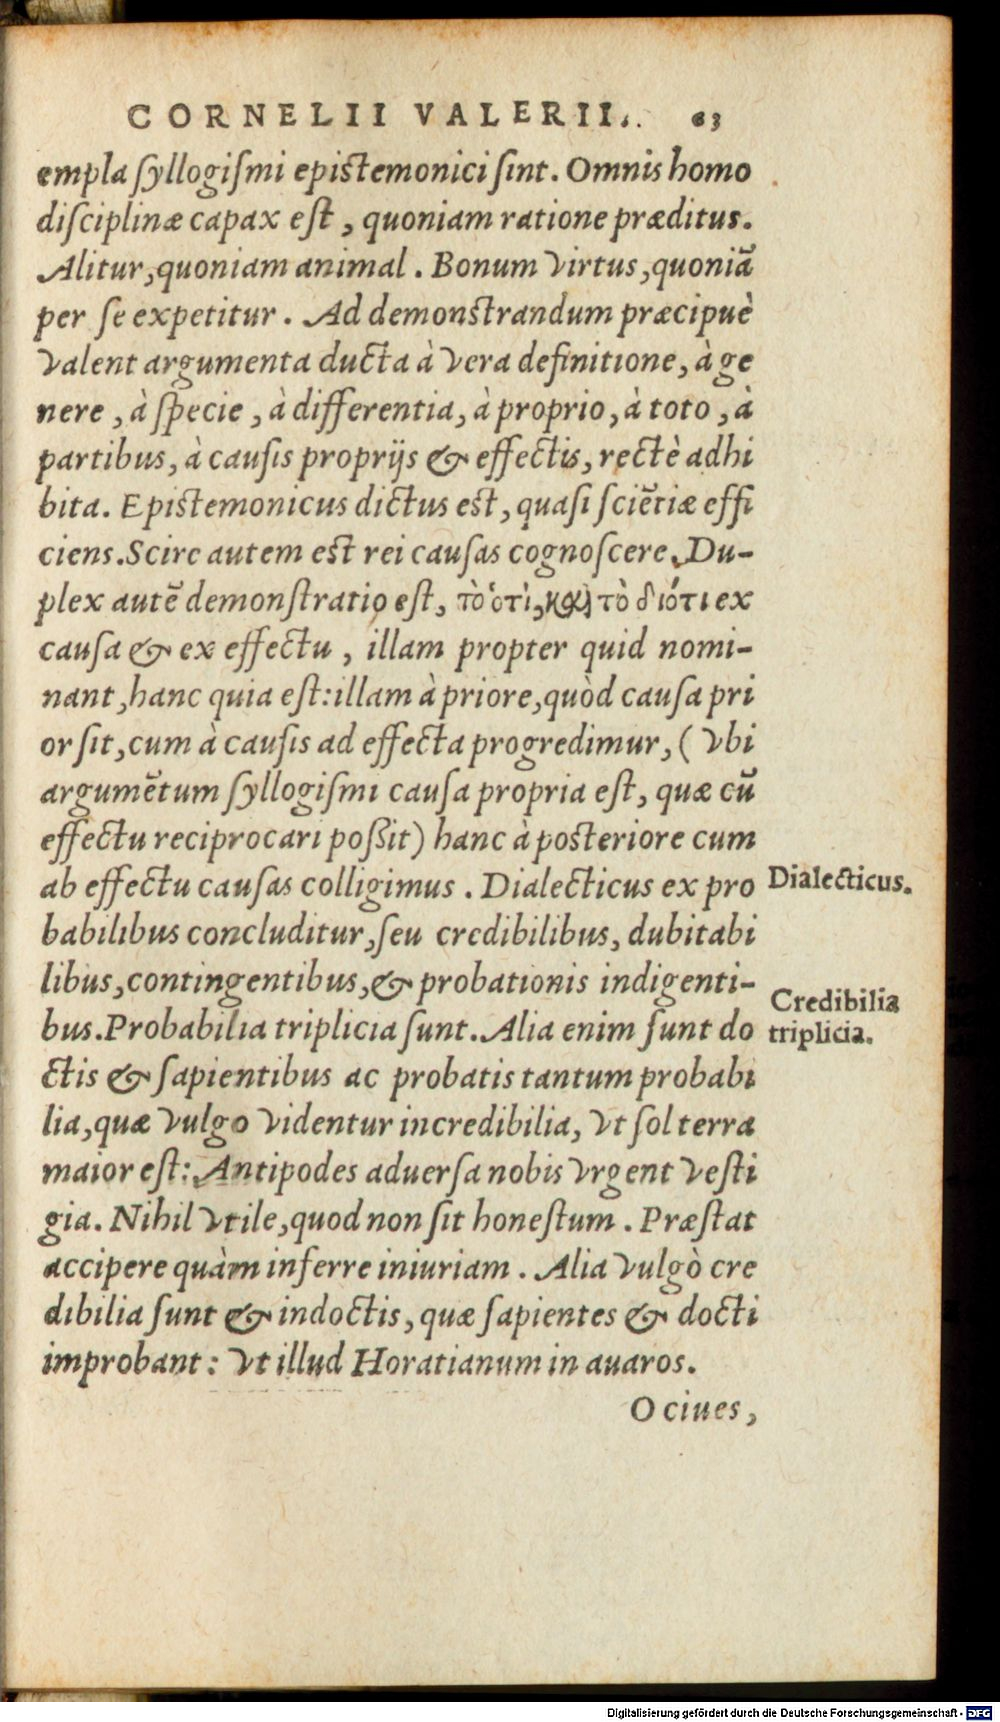 CORNELII VALERII. 63
empla syllogismi epistemonici sint. Omnis homo
disciplinæ capax est, quoniam ratione præditus.
Alitur, quoniam animal. Bonum virtus, quoniã
per se expetitur. Ad demonstrandum præcipuè
valent argumenta ducta à vera definitione, à ge
nere, à specie, à differentia, à proprio, à toto, à
partibus, à causis proprijs & effectis, rectè adhi
bita. Epistemonicus dictus est, quasi sciẽtiæ effi
ciens. Scire autem est rei causas cognoscere. Du-
plex autẽ demonstratio est, τὸ ὁτὶ, καὶ τὸ διότι ex
causa & ex effectu, illam propter quid nomi-
nant, hanc quia est: illam à priore, quòd causa pri
or sit, cum à causis ad effecta progredimur, (vbi
argumẽtum syllogismi causa propria est, quæ cũ
effectu reciprocari poßit) hanc à posteriore cum
ab effectu causas colligimus. Dialecticus ex pro
Dialecticus.
babilibus concluditur, seu credibilibus, dubitabi
libus, contingentibus, & probationis indigenti-
Credibilia
bus. Probabilia triplicia sunt. Alia enim sunt do
triplicia.
ctis & sapientibus ac probatis tantum probabi
lia, quæ vulgo videntur incredibilia, vt sol terra
maior est: Antipodes aduersa nobis vrgent vesti
gia. Nihil vtile, quod non sit honestum. Præstat
accipere quàm inferre iniuriam. Alia vulgò cre
dibilia sunt & indoctis, quæ sapientes & docti
improbant: vt illud Horatianum in auaros.
O ciues,
Digitalisierung gefördert durch die Deutsche Forschungsgemeinschaft - DFG